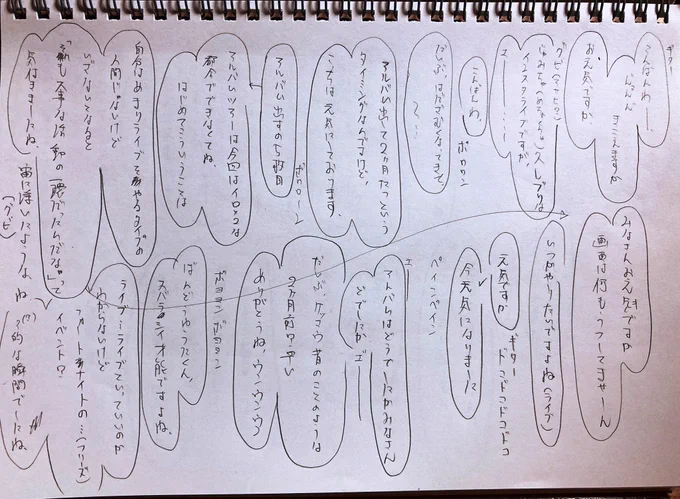 ギター
こんばんわー、
じゃんん
きこえますか
お元気ですか
インスタライブですが、
エー・・・・・
こんばんわ、
ポロロン
だいぶ はださむくなってきて、
アルバム出て2ヶ月たつという
タイミングなんですけど、
こちらは 元気にしております、
アルバム 出すのも5枚目
ポロローン
アルバムツアーは今回はイロンな
都合でできなくてね、
はじめてこういうことは
自分はあまりライブを多くやるタイプの
人間じゃないけど
いざないとなると
「俺も大事な活動の一環だったんだな」って
気付きましたね
宙に浮いたような、ね
(グビ)
みなさんお元気ですか
画面は何もうつってませーん
いつかやりたいですよね(ライブ)
元気ですか
ギター
ドコドコドコドコ
今元気になりました
ペインペイン
アルバムはどうでしたかみなさん
どでしたか エー
だいぶ、ケッコウ昔のことのような
2ヶ月前?早い
ありがとうね、ウンウンウン
ボヨヨン ボヨヨン
ばんどうゆうたくん、
スバラシイ才能ですよね、
ライブ…ライブっていっていいのか
わからないけど
フォートナイトの…(フリーズ)
イベント?
的な瞬間でしたね、